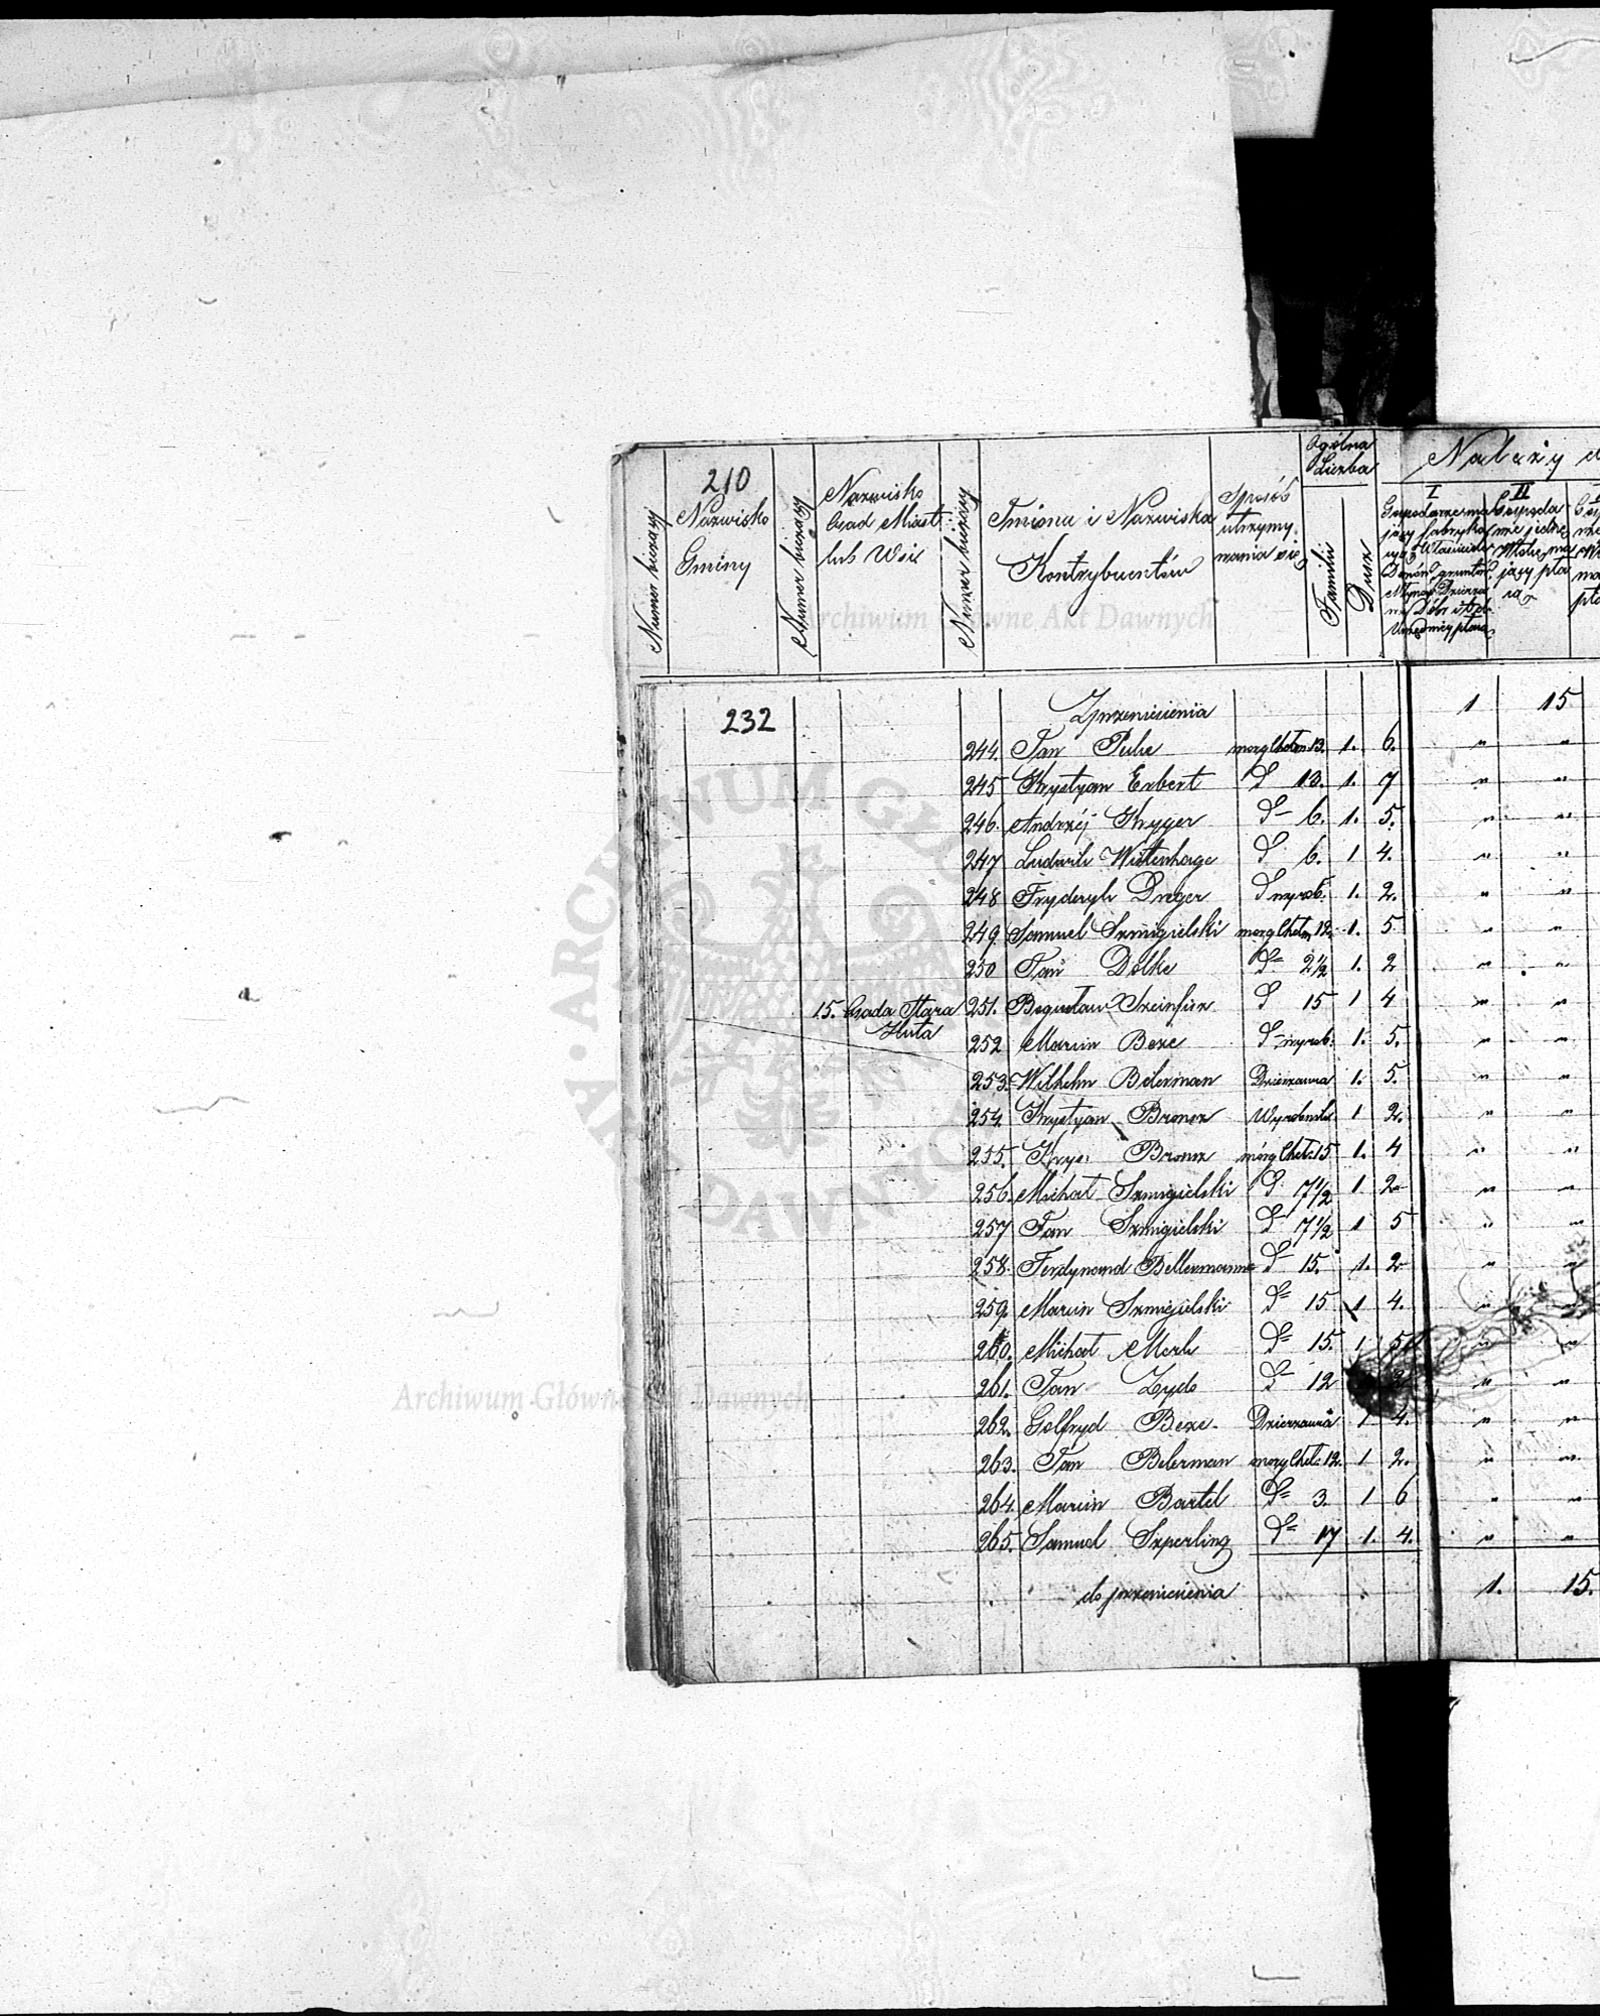 210
Numer bieżący
Nazwisko
Gminy
Numer bieżący
Nazwisko
Osad Miast
lub Wsi
Numer bieżący
Imiona i Nazwiska
Kontrybuentów
Sposób
utrzymy-
wania się
Ogólna
Liczba
Familii
Dusz
Należy d
I
II
Archiwum Główne Akt Dawnych
232
Z przeniesienia 1 15
244. Jan Puhe morg Chełm 13. 1. 6. " "
245 Krystyan Erbert D 13. 1. 7 " "
246. Andrzéj Kryger D- 6. 1. 5. " "
247 Ludwik Wittenhage D 6. 1 4. " "
248 Fryderyk Dreger D wyrob. 1. 2. " "
249. Samuel Szmigielski morg Chełm 12. 1. 5 " "
250 Jan Dolke D= 2½ 1. 2 " "
15. Osada Stara 251. Bogusław Szeinfisz D 15 1 4 " "
Huta
252 Marcin Beze D- wyrob: 1. 5. " "
253. Wilhelm Belerman Dzierzawca 1. 5. " "
254. Krystyan Bronsz Wyrobnik 1 2. " "
255. Krys: Bronsz mórg Cheł: 15 1. 4 " "
256. Michał Szmigielski D. 7½ 1. 2 " "
257 Jan Szmigielski D- 7½ 1 5 " "
258. Ferdynand Bellermann D- 15. 1. 2 " "
259. Marcin Szmigielski D= 15 1 4. " "
260. Michał Merk D= 15. 1 5 " "
261. Jan Zyds D- 12 2 " "
262. Golfryd Beze Dzierzawca 1 4. " "
263. Jan Belerman morg Cheł: 12. 1 2. " "
264. Marcin Bartel D= 3. 1 6 " "
265. Samuel Szperling D= 17 1. 4. " "
do przeniesienia 1. 15.
ARCHIWUM GŁÓWNE AKT DAWNYCH
Archiwum Główne Akt Dawnych